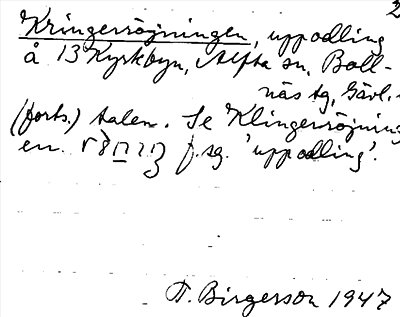 2
Kringersröjningen, uppodling
å 13 Kyrkbyn, Alfta sn, Boll-
näs tg, Gävl.-
(forts.) talen. Se Klingersröjning
en. f. sg. 'uppodling'.
T. Birgerson 1947